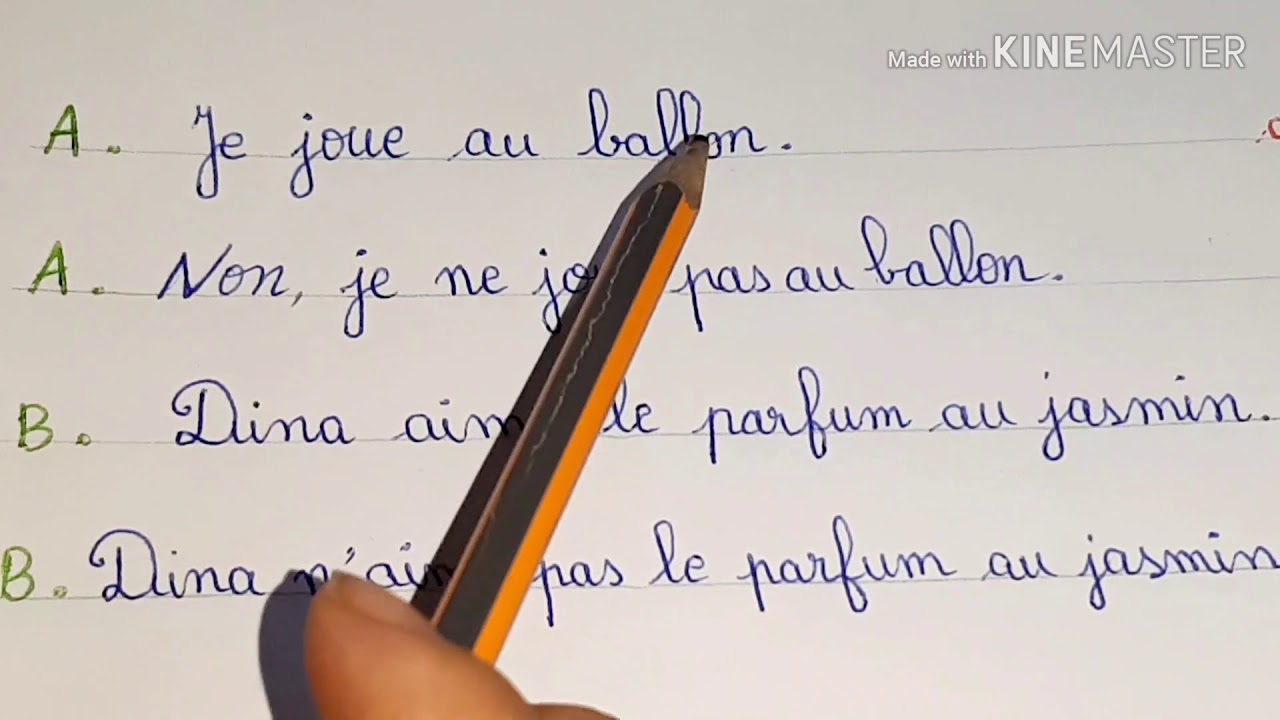 Made with KINEMASTER
A. Je joue au ballon.
A. Non, je ne pas au ballon.
B. Dina le parfum au jasmin.
B. Dina pas le parfum au jasmin